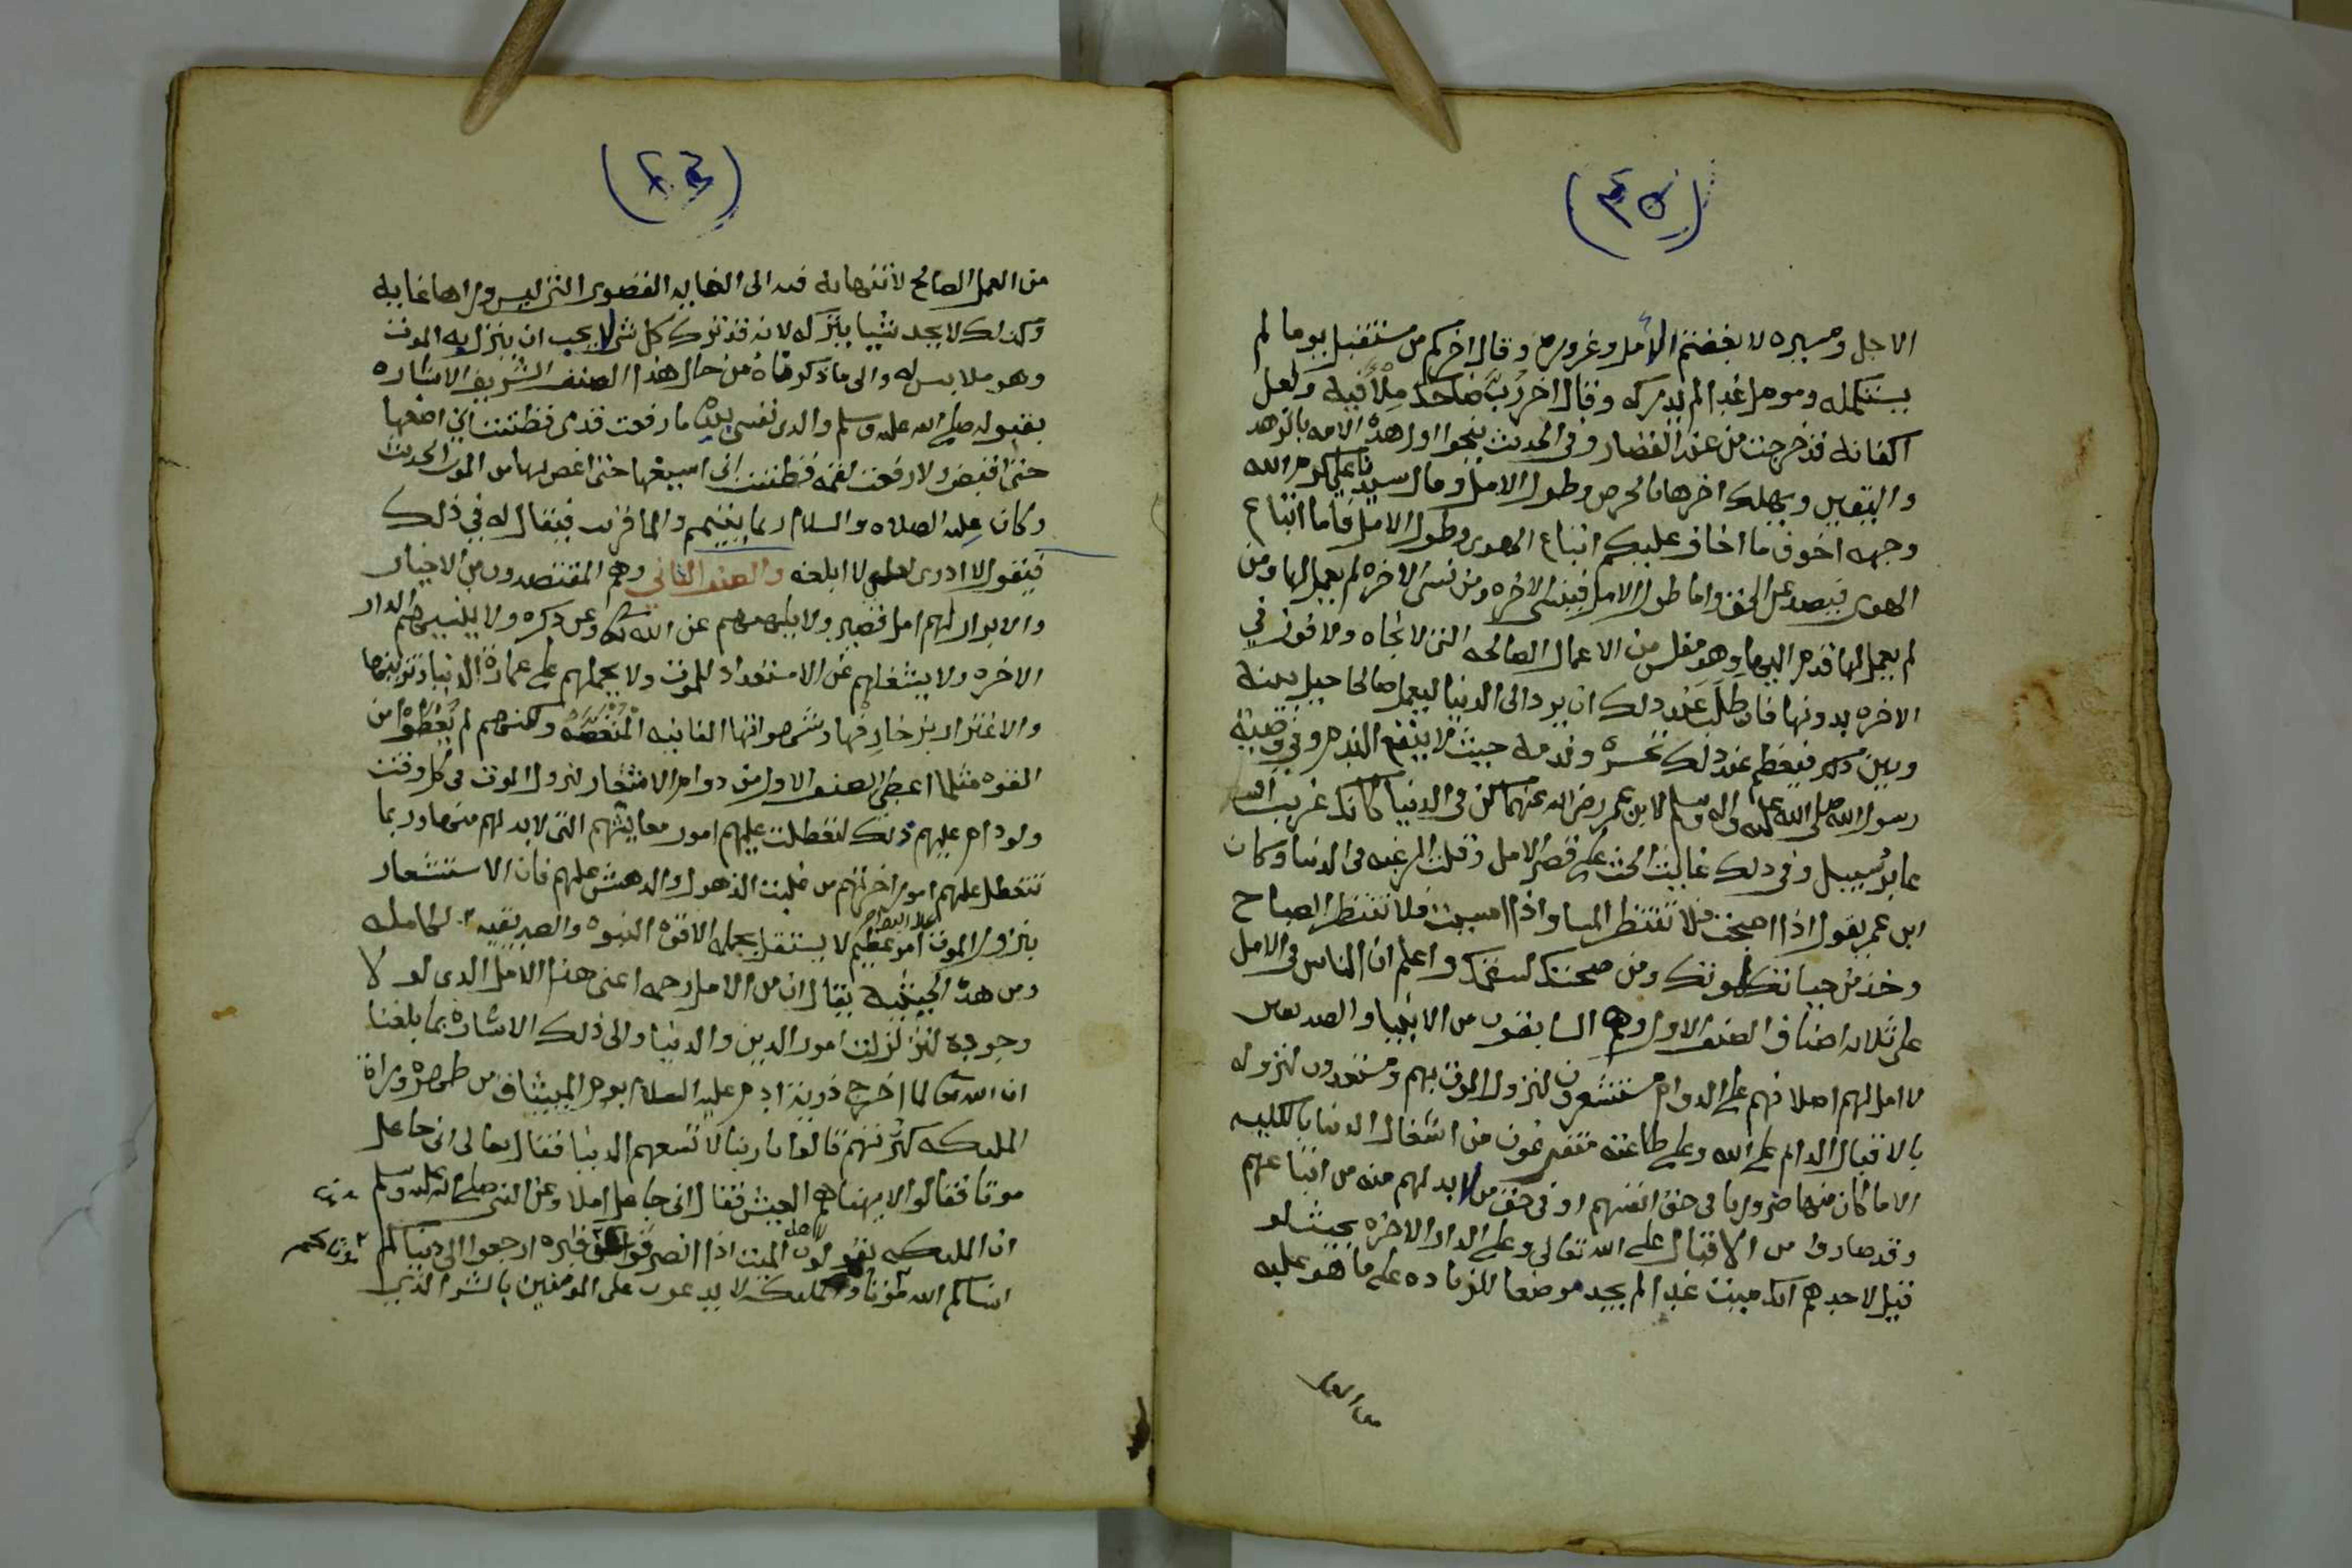 (٤٥)
الاجل ومسيره لابغضتم الامل وغروره وقال اخر كم من مستقبل يوما لم
يستكمله ومومل غدا لم يدركه وقال اخر رب ضاحك ملأ فيه ولعل
اكفانه قد خرجت من عند القصار وفي الحديث ينجوا اول هذه الامه بالزهد
واليقين ويهلك اخرها بالحرص وطول الامل وقال سيدنا علي كرم الله
وجهه اخوف ما اخاف عليكم اتباع الهوى وطول الامل فاما اتباع
الهوى فيصد عن الحق واما طول الامل فينسى الاخره ومن نسى الاخره لم يعمل لها ومن
لم يعمل لها قدم اليها وهو مفلس من الاعمال الصالحه التي لا نجاه ولا فوز في
الاخره بدونها فان طلب عند ذلك ان يرد الى الدنيا ليعمل صالحا حيل بينه
وبين فتعظم عند ذلك تحسره وندمه حيث لا ينفع الندم وفي وصية
رسول الله صلى الله عليه واله وسلم لابن عمر رضي الله عنهما كن في الدنيا كانك غريب او
عابر سبيل وفي ذلك غاية الحث على قصر الامل وقلت الرغبه في الدنيا وكان
ابن عمر يقول اذا اصبحت فلا تنتظر المسا واذا امسيت فلا تنتظر الصباح
وخذ من حياتك لموتك ومن صحتك لسقمك واعلم ان الناس في الامل
على ثلاثه اصناف الصنف الاول وهم السابقون من الانبيا والصديقين
لا امل لهم اصلا فهم على الدوام مستشعرون لنزول الموت بهم ومستعدون لنزوله
بالاقبال الدائم على الله وعلى طاعته متفرغون من اشغال الدنيا بالكليه
الا ما كان منها ضروريا في حق انفسهم او في حق من لا بد لهم منه من اتباعهم
وقد صاروا من الاقبال على الله تعالى وعلى الدار الاخره بحيث لو
قيل لاحدهم انك ميت غدا لم يجد موضعا للزياده على ما هو عليه
من العمل
(٤٦)
من العمل الصالح لانتهائه فيه الى الغايه القصوى التي ليس وراها غايه
وكذلك لا يجد شيا يتركه لانه قد ترك كل شي لا يحب ان ينزل به الموت
وهو ملابس له والى ما ذكرناه من حال هذا الصنف الشريف الاشاره
بقوله صلى الله عليه وسلم والذي نفسي بيده ما رفعت قدمي فظننت اني اضعها
حتى اقبض ولا رفعت لقمه فظننت اني اسيغها حتى اغص بها من الموت الحديث
وكان عليه الصلاه والسلام ربما يتيمم والما قريب فيقال له في ذلك
فيقول لا ادري لعلي لا ابلغه والصنف الثاني وهم المقتصدون من الاخيار
والابرار لهم امل قصير ولا يلهيهم عن الله تعالى وعن ذكره ولا ينسيهم الدار
الاخره ولا يشغلهم عن الاستعداد للموت ولا يحملهم على عمارة الدنيا وتزيينها
والاغترار بزخارفها وشهواتها الفانيه المنغصه ولكنهم لم يعطوا من
القوه مثلما اعطي الصنف الاول من دوام الاستشعار لنزول الموت في كل وقت
ولو دام عليهم ذلك لتعطلت عليهم امور معايشهم التي لا بد لهم منها وربما
تتعطل عليهم امور اخرتهم من غلبت الذهول والدهش عليهم فان الاستشعار
بنزول الموت امر عظيم لا يستقل بحمله الا قوة النبوه والصديقيه الكامله
ومن هذه الحيثيه يقال ان من الامل رحمه اعني هذا الامل الذي لو لا
وجوده لتزلزلت امور الدين والدنيا والى ذلك الاشاره بما بلغنا
ان الله تعالى لما اخرج ذرية ادم عليه السلام يوم الميثاق من ظهره وراة
الملئكه كثرتهم قالوا يا ربنا لا تسعهم الدنيا فقال تعالى اني جاعل
موتا فقالوا لا يهناهم العيش فقال اني جاعل املا وعن النبي صلى الله عليه وسلم
ان الملئكه تقول لاهل الميت اذا انصرفوا عن قبره ارجعوا الى دنياكم
انساكم الله موتاكم والملئكه لا يدعون على المومنين بالشر الذي